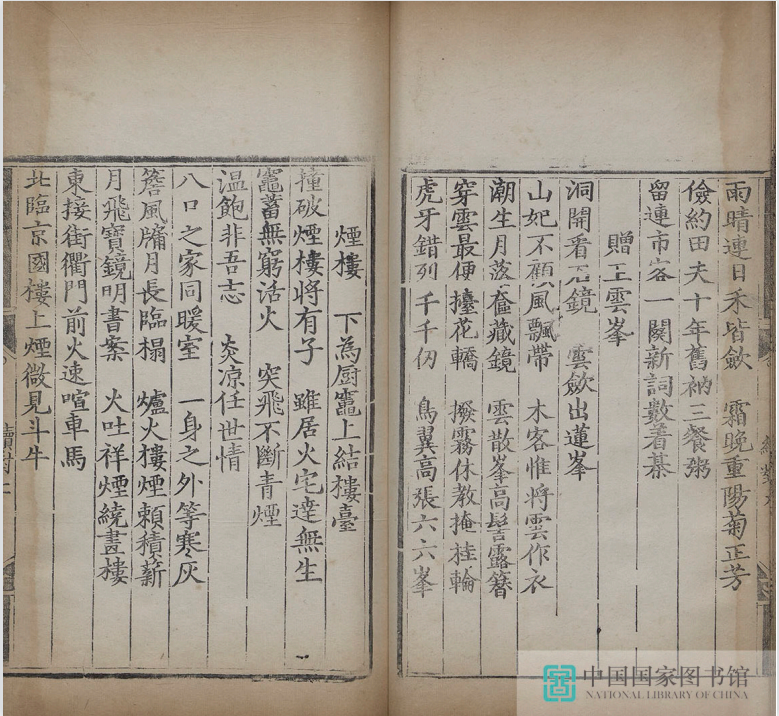 雨晴連日禾皆斂　霜晚重陽菊正芳
儉約田夫十年舊衲三餐粥
留連市客一闋新詞數着棊
贈王雲峯
洞開看石鏡　雲斂出蓮峯
山妃不顧風飄帶　木客惟將雲作衣
潮生月落奩藏鏡　雲散峯高髻露簪
穿雲最便擡花轎　撥霧休教掩桂輪
虎牙錯列千千仞　鳥翼高張六六峯
煙樓　下為厨竈上結樓臺
撞破煙樓將有子　雖居火宅達無生
竈蓄無窮活火　突飛不斷青煙
溫飽非吾志　炎凉任世情
八口之家同暖室　一身之外等寒灰
簷風牖月長臨榻　爐火樓煙頼積薪
月飛寶鏡明書案　火吐祥煙繞畫樓
東接街衢門前火速喧車馬
北臨京國樓上煙微見斗牛
中国国家图书馆
NATIONAL LIBRARY OF CHINA